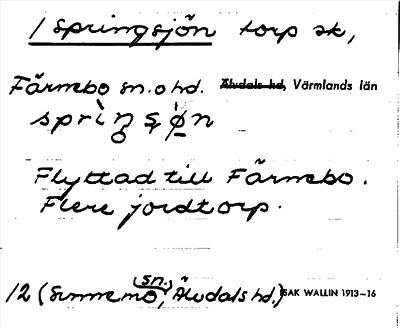 1 Springsjön torp sk,
Färnebo sn. o hd. Älvdals hd, Värmlands län
Flyttad till Färnebo.
Flere jordtorp.
12 (Sunnemo sn., Älvdals hd.) ISAK WALLIN 1913–16